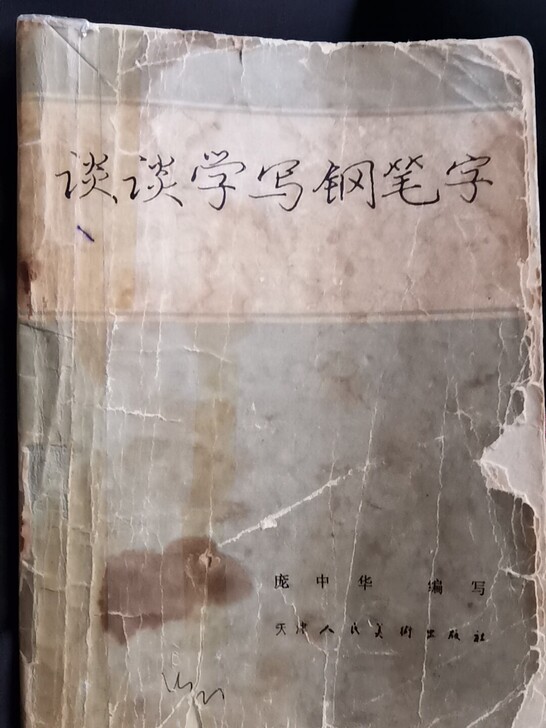 谈谈学写钢笔字
庞中华 编写
天津人民美術出版社